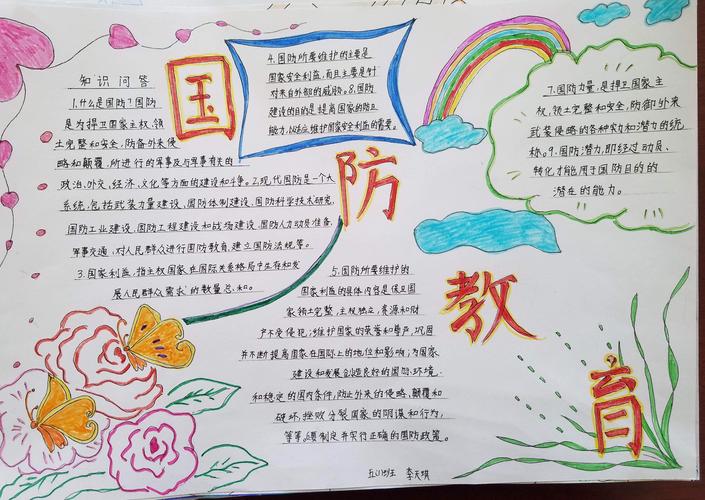 国
防
教
育
知识问答
1.什么是国防?国防
是为捍卫国家主权、领
土完整和安全,防备外来侵
略和颠覆,所进行的军事及与军事有关的
政治、外交、经济、文化等方面的建设和斗争。2.现代国防是一个大
系统,包括武装力量建设、国防体制建设、国防科学技术研究,
国防工业建设、国防工程建设和战场建设、国防人力动员准备,
军事交通,对人民群众进行国防教育,建立国防法规等。
3.国家利益,指主权国家在国际关系格局中生存和发
展人民群众需求的数量总和。
4.国防所要维护的主要是
国家安全利益,而且主要是针
对来自外部的威胁。8.国防
建设的目的是提高国家的防卫
能力,以适应维护国家安全利益的需要。
5.国防所要维护的
国家利益的具体内容是保卫国
家领土完整,主权独立,资源和财
产不受侵犯;维护国家的荣誉和尊严,巩固
并不断提高国家在国际上的地位和影响;为国家
建设和发展创造良好的国际环境.
和稳定的国内条件,防止外来的侵略、颠覆和
破坏,挫败分裂国家的阴谋和行为,
等等。制定并实行正确的国防政策。
7.国防力量,是捍卫国家主
权,领土完整和安全,防御外来
武装侵略的各种实力和潜力的统
称。9.国防潜力,即经过动员、
转化才能用于国防目的的
潜在的能力。
李天琪